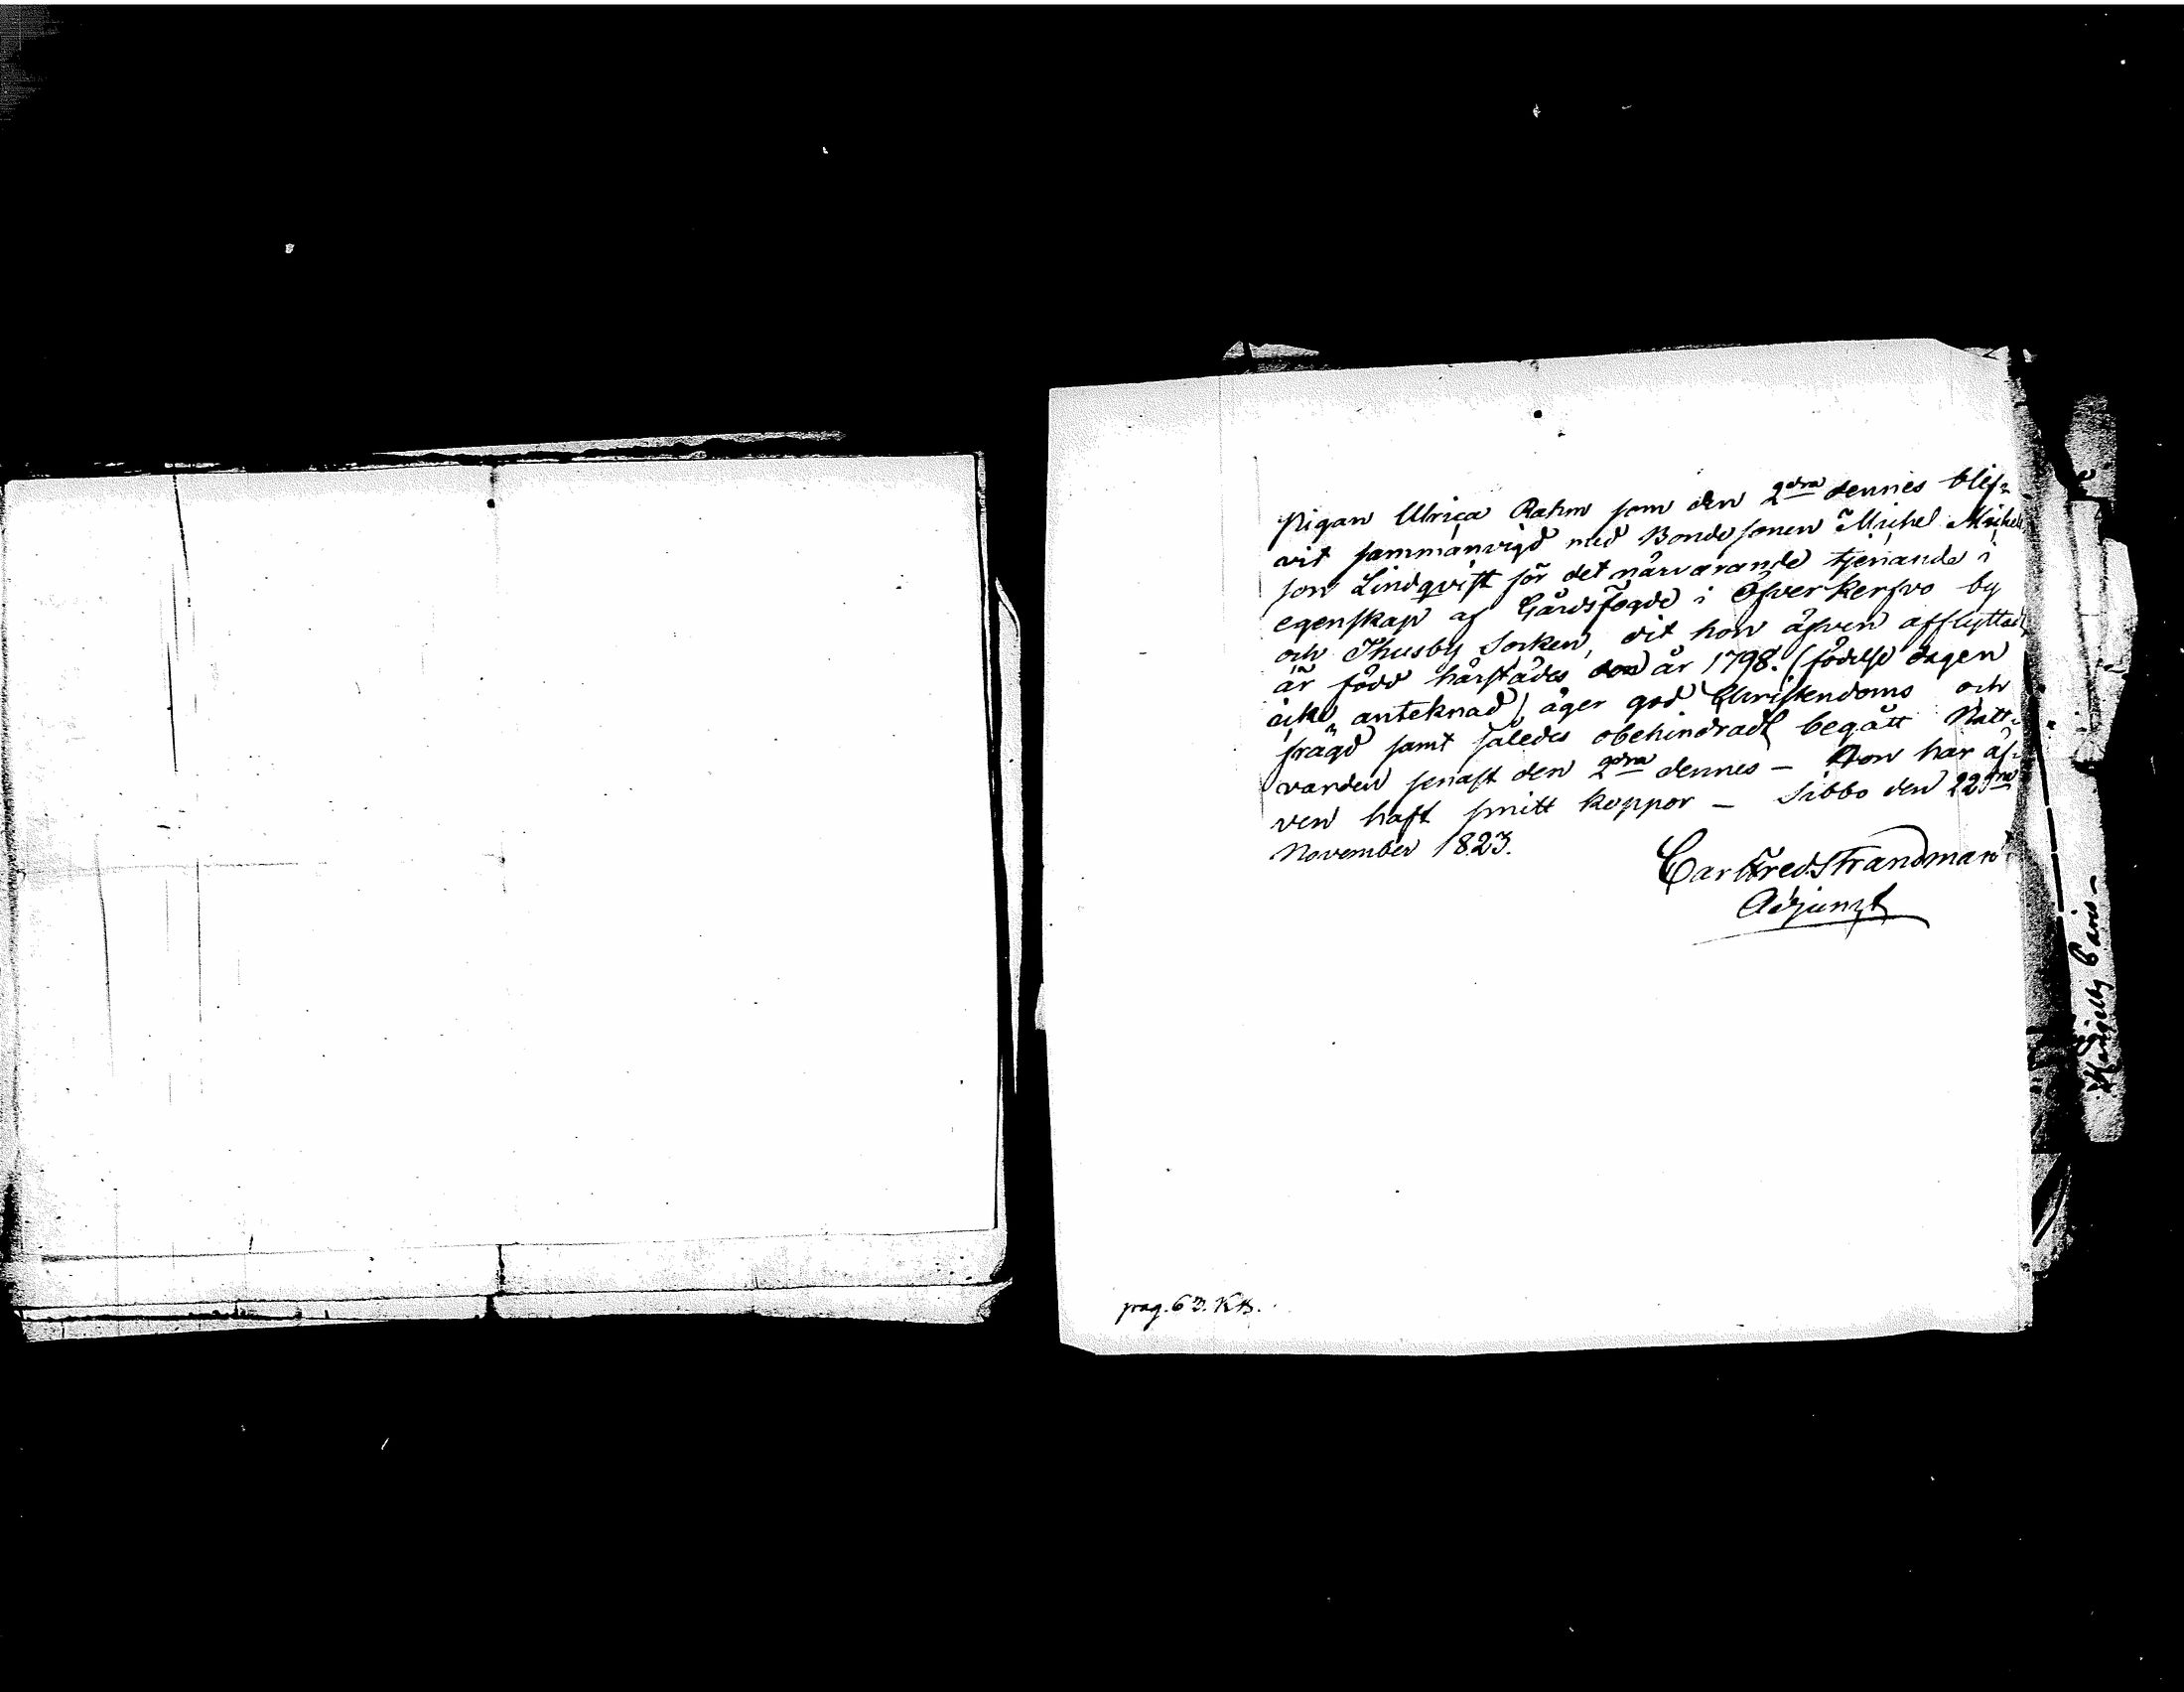 Pigan Ulrica Rahm som den 2dra dennes blif-
vit sammanvigd med Bondesonen Michel Michels
son Lindqvist för det närvarande tjenande i
egenskap af Gårdsfogde i Öfverkerfvo by
och Thusby Socken, dit hon äfven afflyttar,
är född härstädes år 1798. (födelse dagen
icke anteknad) äger god Christendoms och
frägd samt således obehindradt begått Natt-
varden senast den 2dra dennes — Hon har äf-
ven haft smitt koppor — Sibbo den 22dra
November 1823.
Carl Fred Strandman
Adjunct
pag. 63. KB.